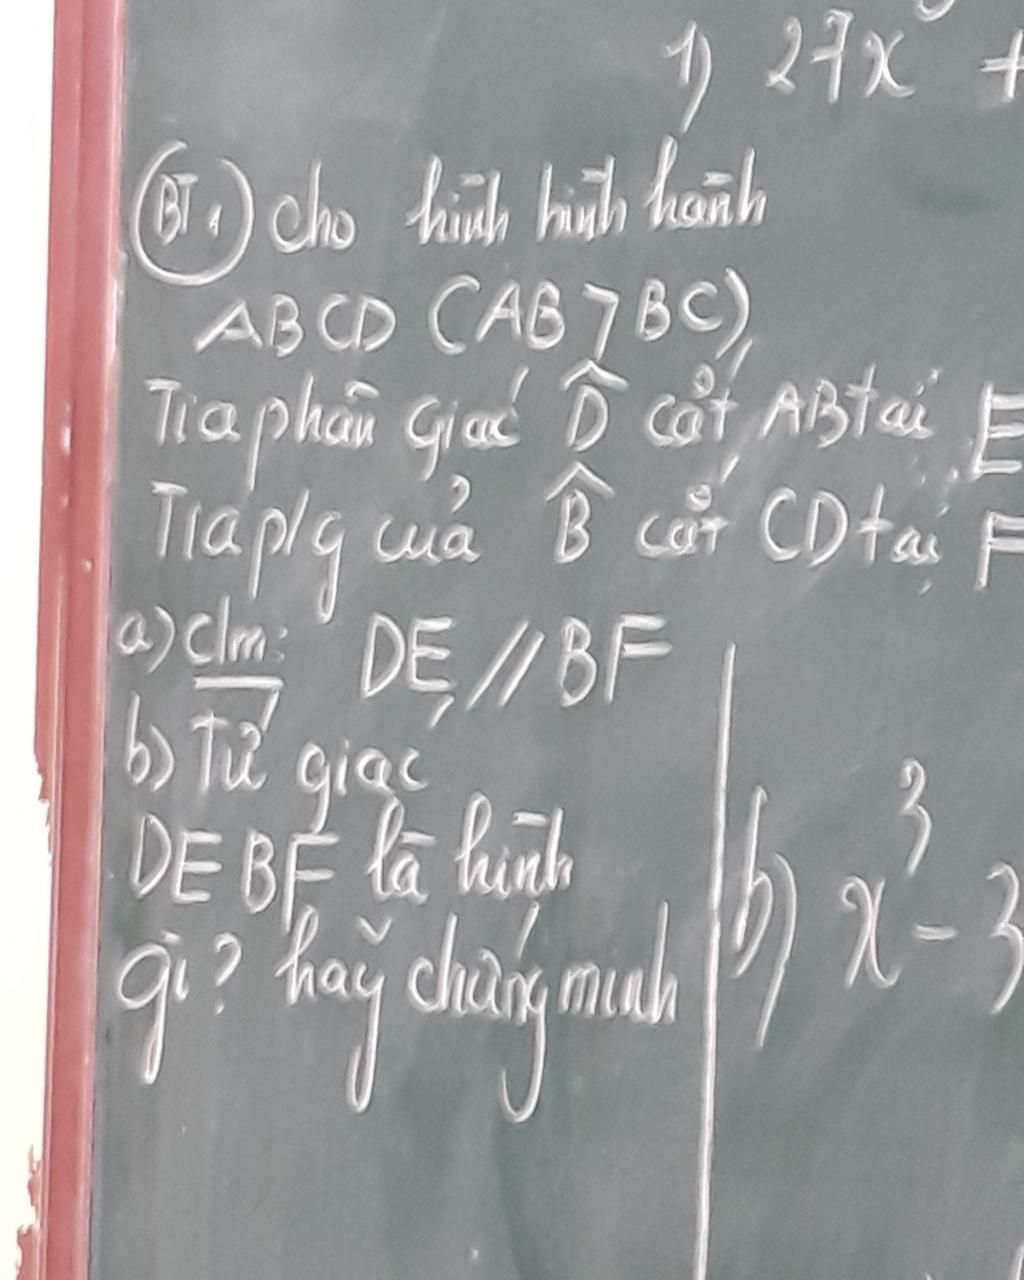 1) 27x +
BT1 Cho hình bình hành
ABCD (AB > BC),
Tia phân giác D̂ cắt AB tại E
Tia p/g của B̂ cắt CD tại F
a) c/m: DE // BF
b) Tứ giác
DEBF là hình
gì? hãy chứng minh
b) x³ - 3